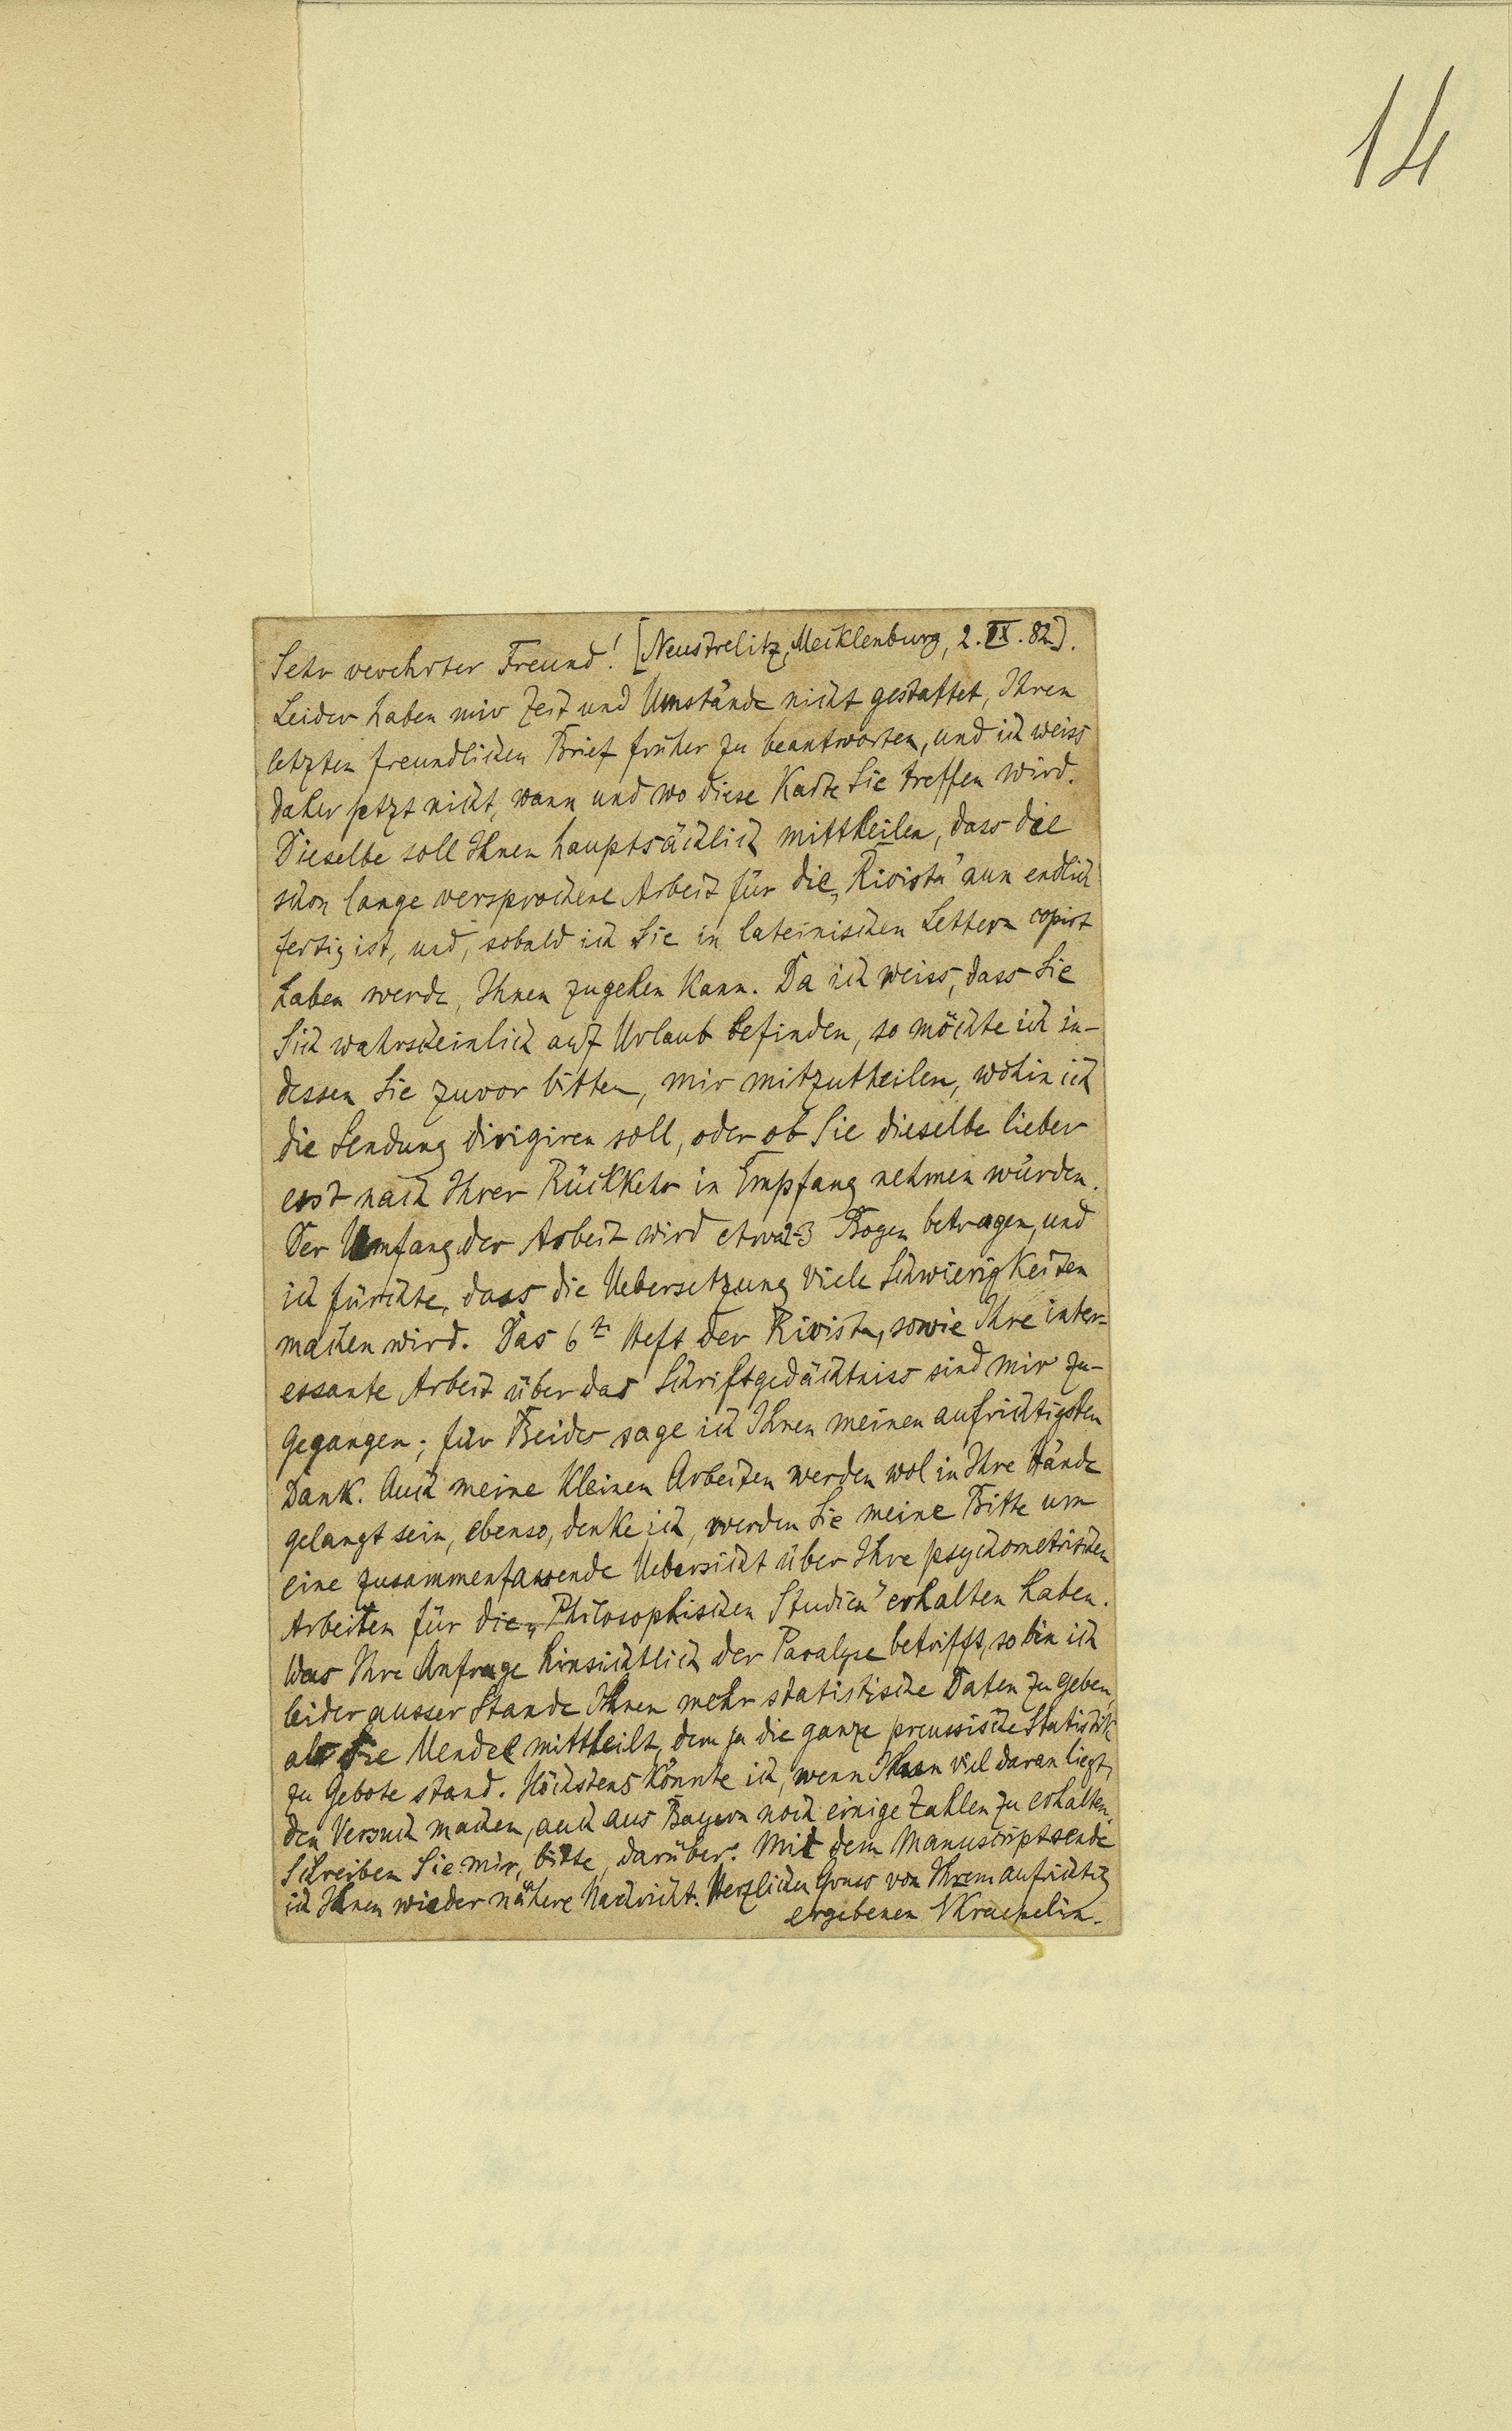 14
Sehr verehrter Freund! [Neustrelitz, Mecklenburg, 2. IX. 82].
Leider haben mir Zeit und Umstände nicht gestattet, Ihren
letzten freundlichen Brief früher zu beantworten, und ich weiss
daher jetzt nicht, wann und wo diese Karte Sie treffen wird.
Dieselbe soll Ihnen hauptsächlich mittheilen, dass die
schon lange versprochene Arbeit für die „Rivista" nun endlich
fertig ist, und, sobald ich sie in lateinischen Lettern copirt
haben werde, Ihnen zugehen kann. Da ich weiss, dass Sie
Sich wahrscheinlich auf Urlaub befinden, so möchte ich in-
dessen Sie zuvor bitten, mir mitzutheilen, wohin ich
die Sendung dirigiren soll, oder ob Sie dieselbe lieber
erst nach Ihrer Rückkehr in Empfang nehmen würden.
Der Umfang der Arbeit wird etwa 2-3 Bogen betragen, und
ich fürchte, dass die Uebersetzung viele Schwierigkeiten
machen wird. Das 6te Heft der Rivista, sowie Ihre inter-
essante Arbeit über das Schriftgedächtniss sind mir zu-
gegangen; für Beides sage ich Ihnen meinen aufrichtigsten
Dank. Auch meine kleinen Arbeiten werden wol in Ihre Hände
gelangt sein, ebenso, denke ich, werden Sie meine Bitte um
eine zusammenfassende Uebersicht über Ihre psychometrischen
Arbeiten für die „Philosophischen Studien" erhalten haben.
Was Ihre Anfrage hinsichtlich der Paralyse betrifft, so bin ich
leider ausser Stande Ihnen mehr statistische Daten zu geben,
als sie Mendel mittheilt, dem ja die ganze preussische Statistik
zu Gebote stand. Höchstens könnte ich, wenn Ihnen viel daran liegt,
den Versuch machen, auch aus Bayern noch einige Zahlen zu erhalten.
Schreiben Sie mir, bitte, darüber. Mit dem Manuscript sende
ich Ihnen wieder nähere Nachricht. Herzlichen Gruss von Ihrem aufrichtig
ergebenen Kraepelin.